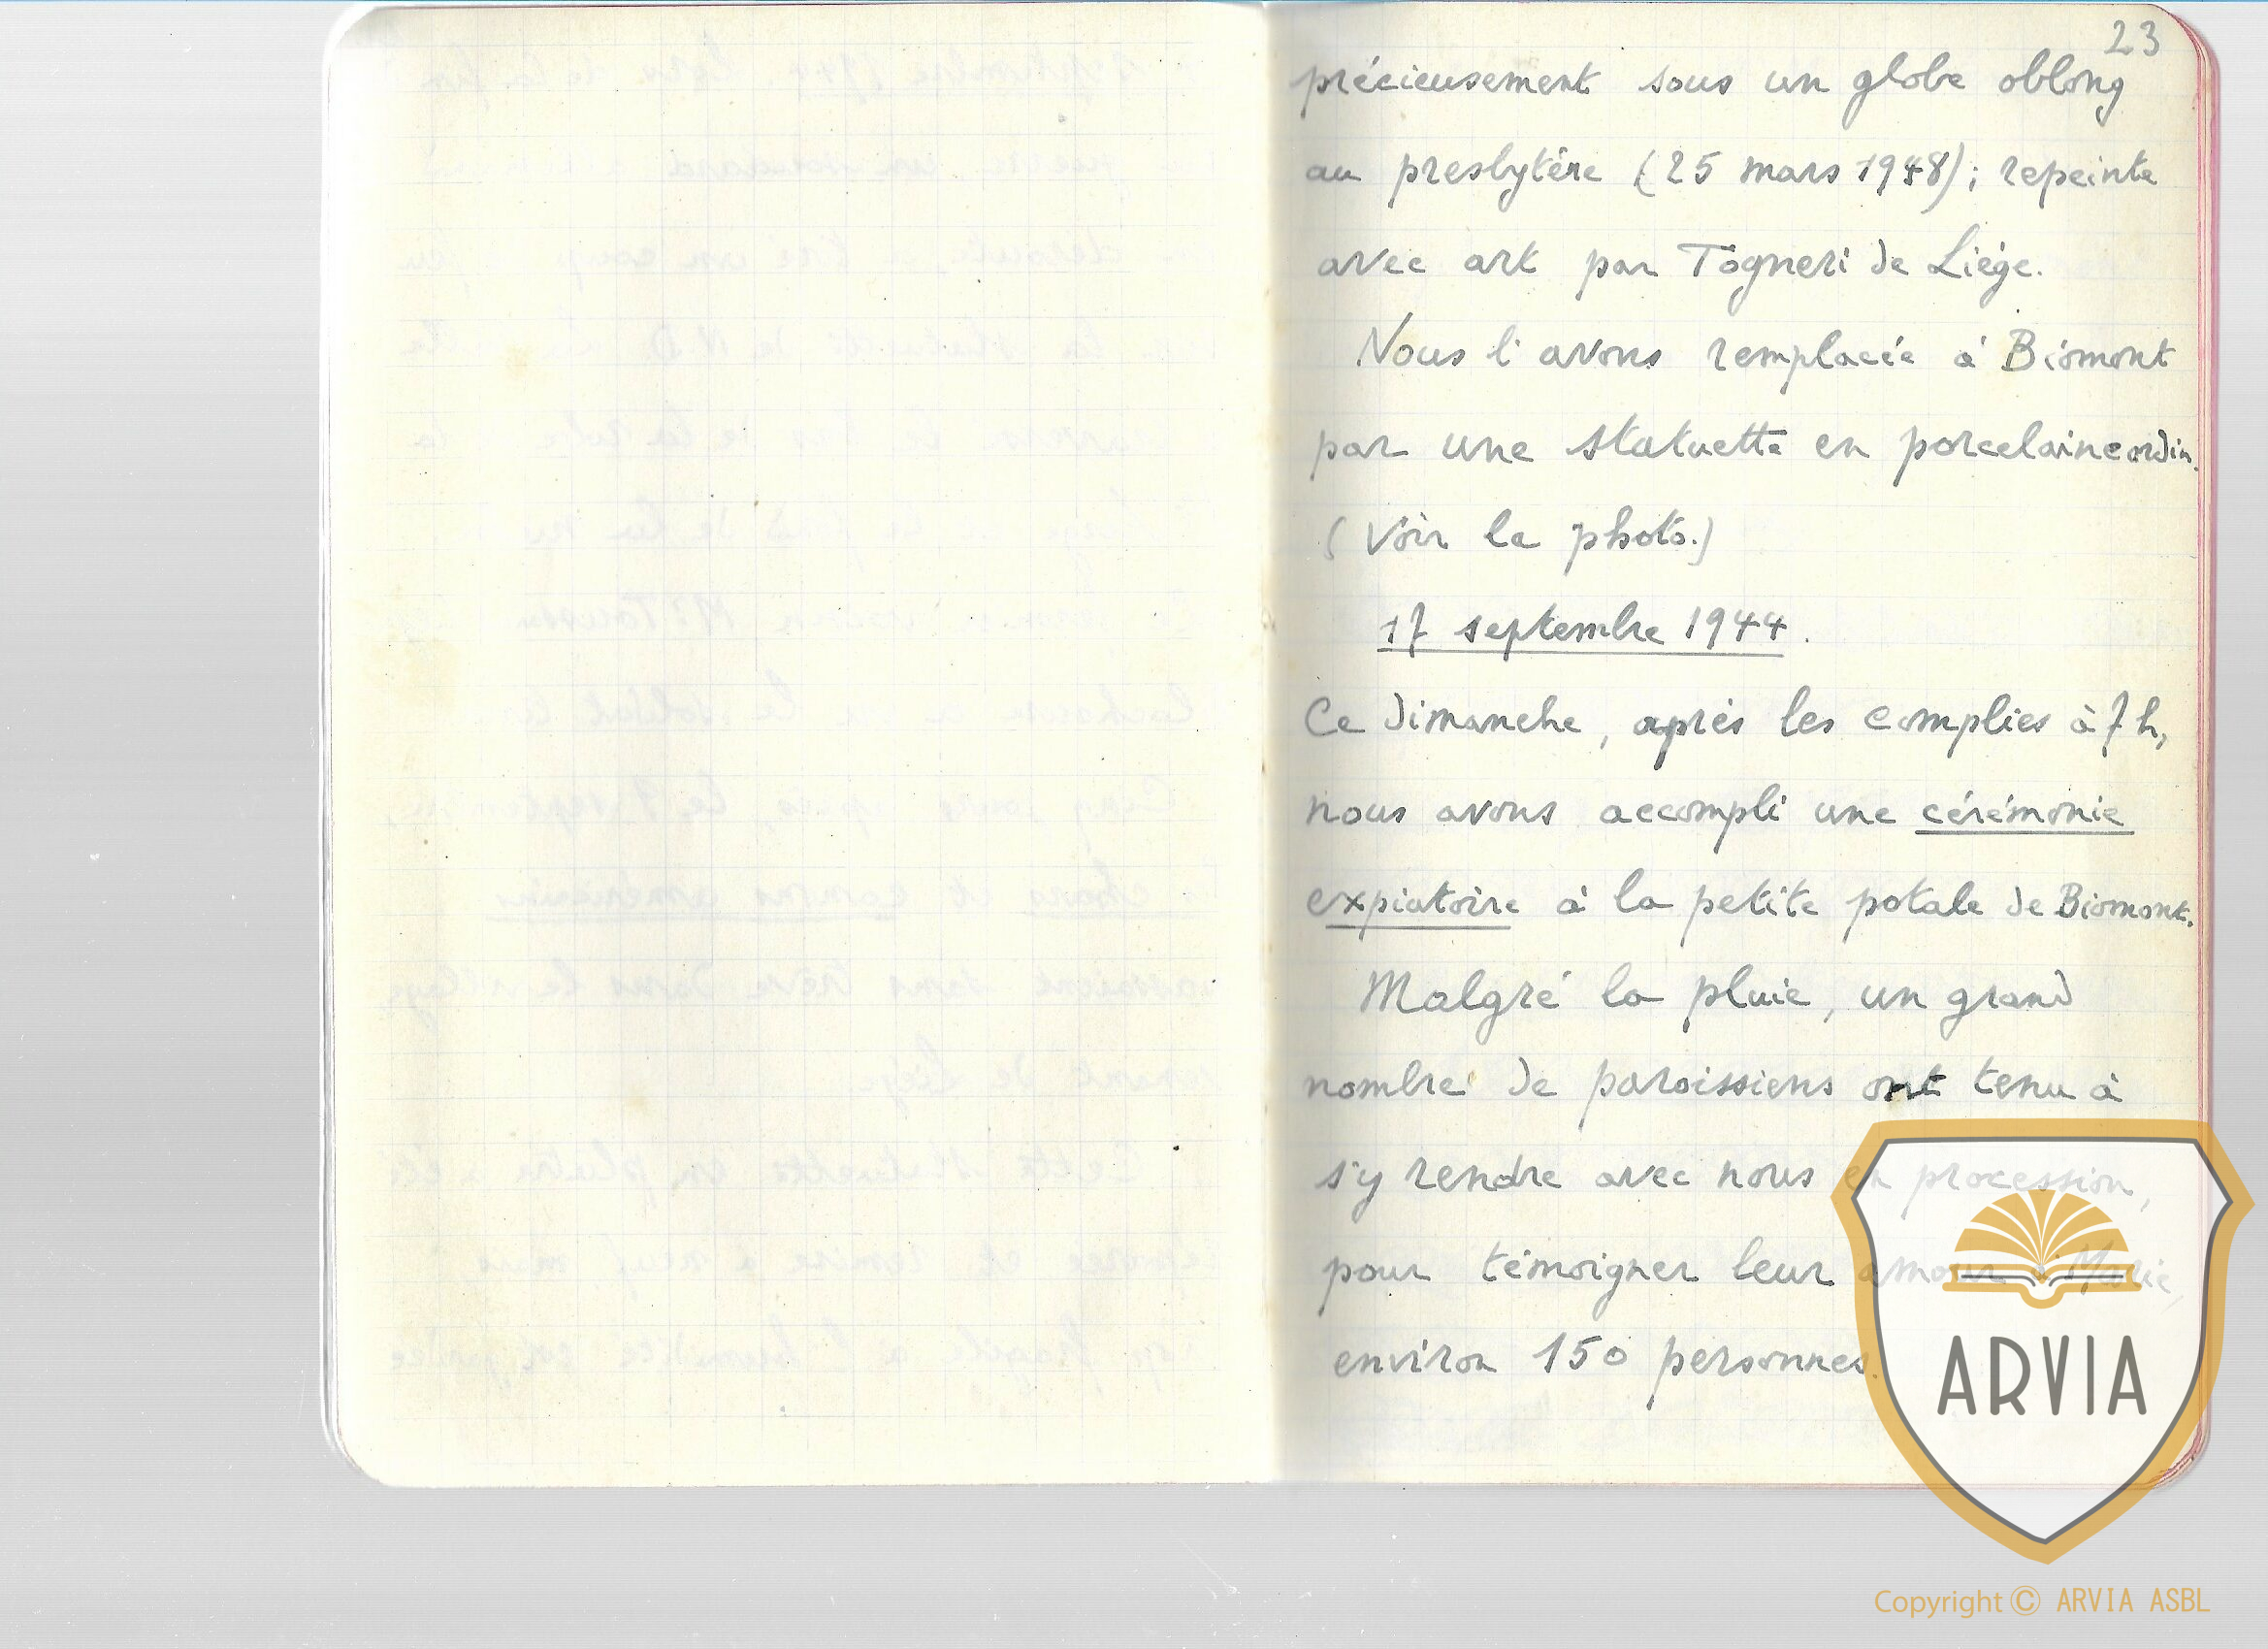 23
précieusement sous un globe oblong
au presbytère (25 mars 1948); repeinte
avec art par Togneri de Liége.
Nous l'avons remplacée à Biomont
par une statuette en porcelaine ordin.
(Voir la photo.)
17 septembre 1944.
Ce dimanche, après les complies à 7 h,
nous avons accompli une cérémonie
expiatoire à la petite potale de Biomont.
Malgré la pluie, un grand
nombre de paroissiens ont tenu à
s'y rendre avec nous en procession,
pour témoigner leur amour à Marie,
environ 150 personnes.
ARVIA
Copyright © ARVIA ASBL